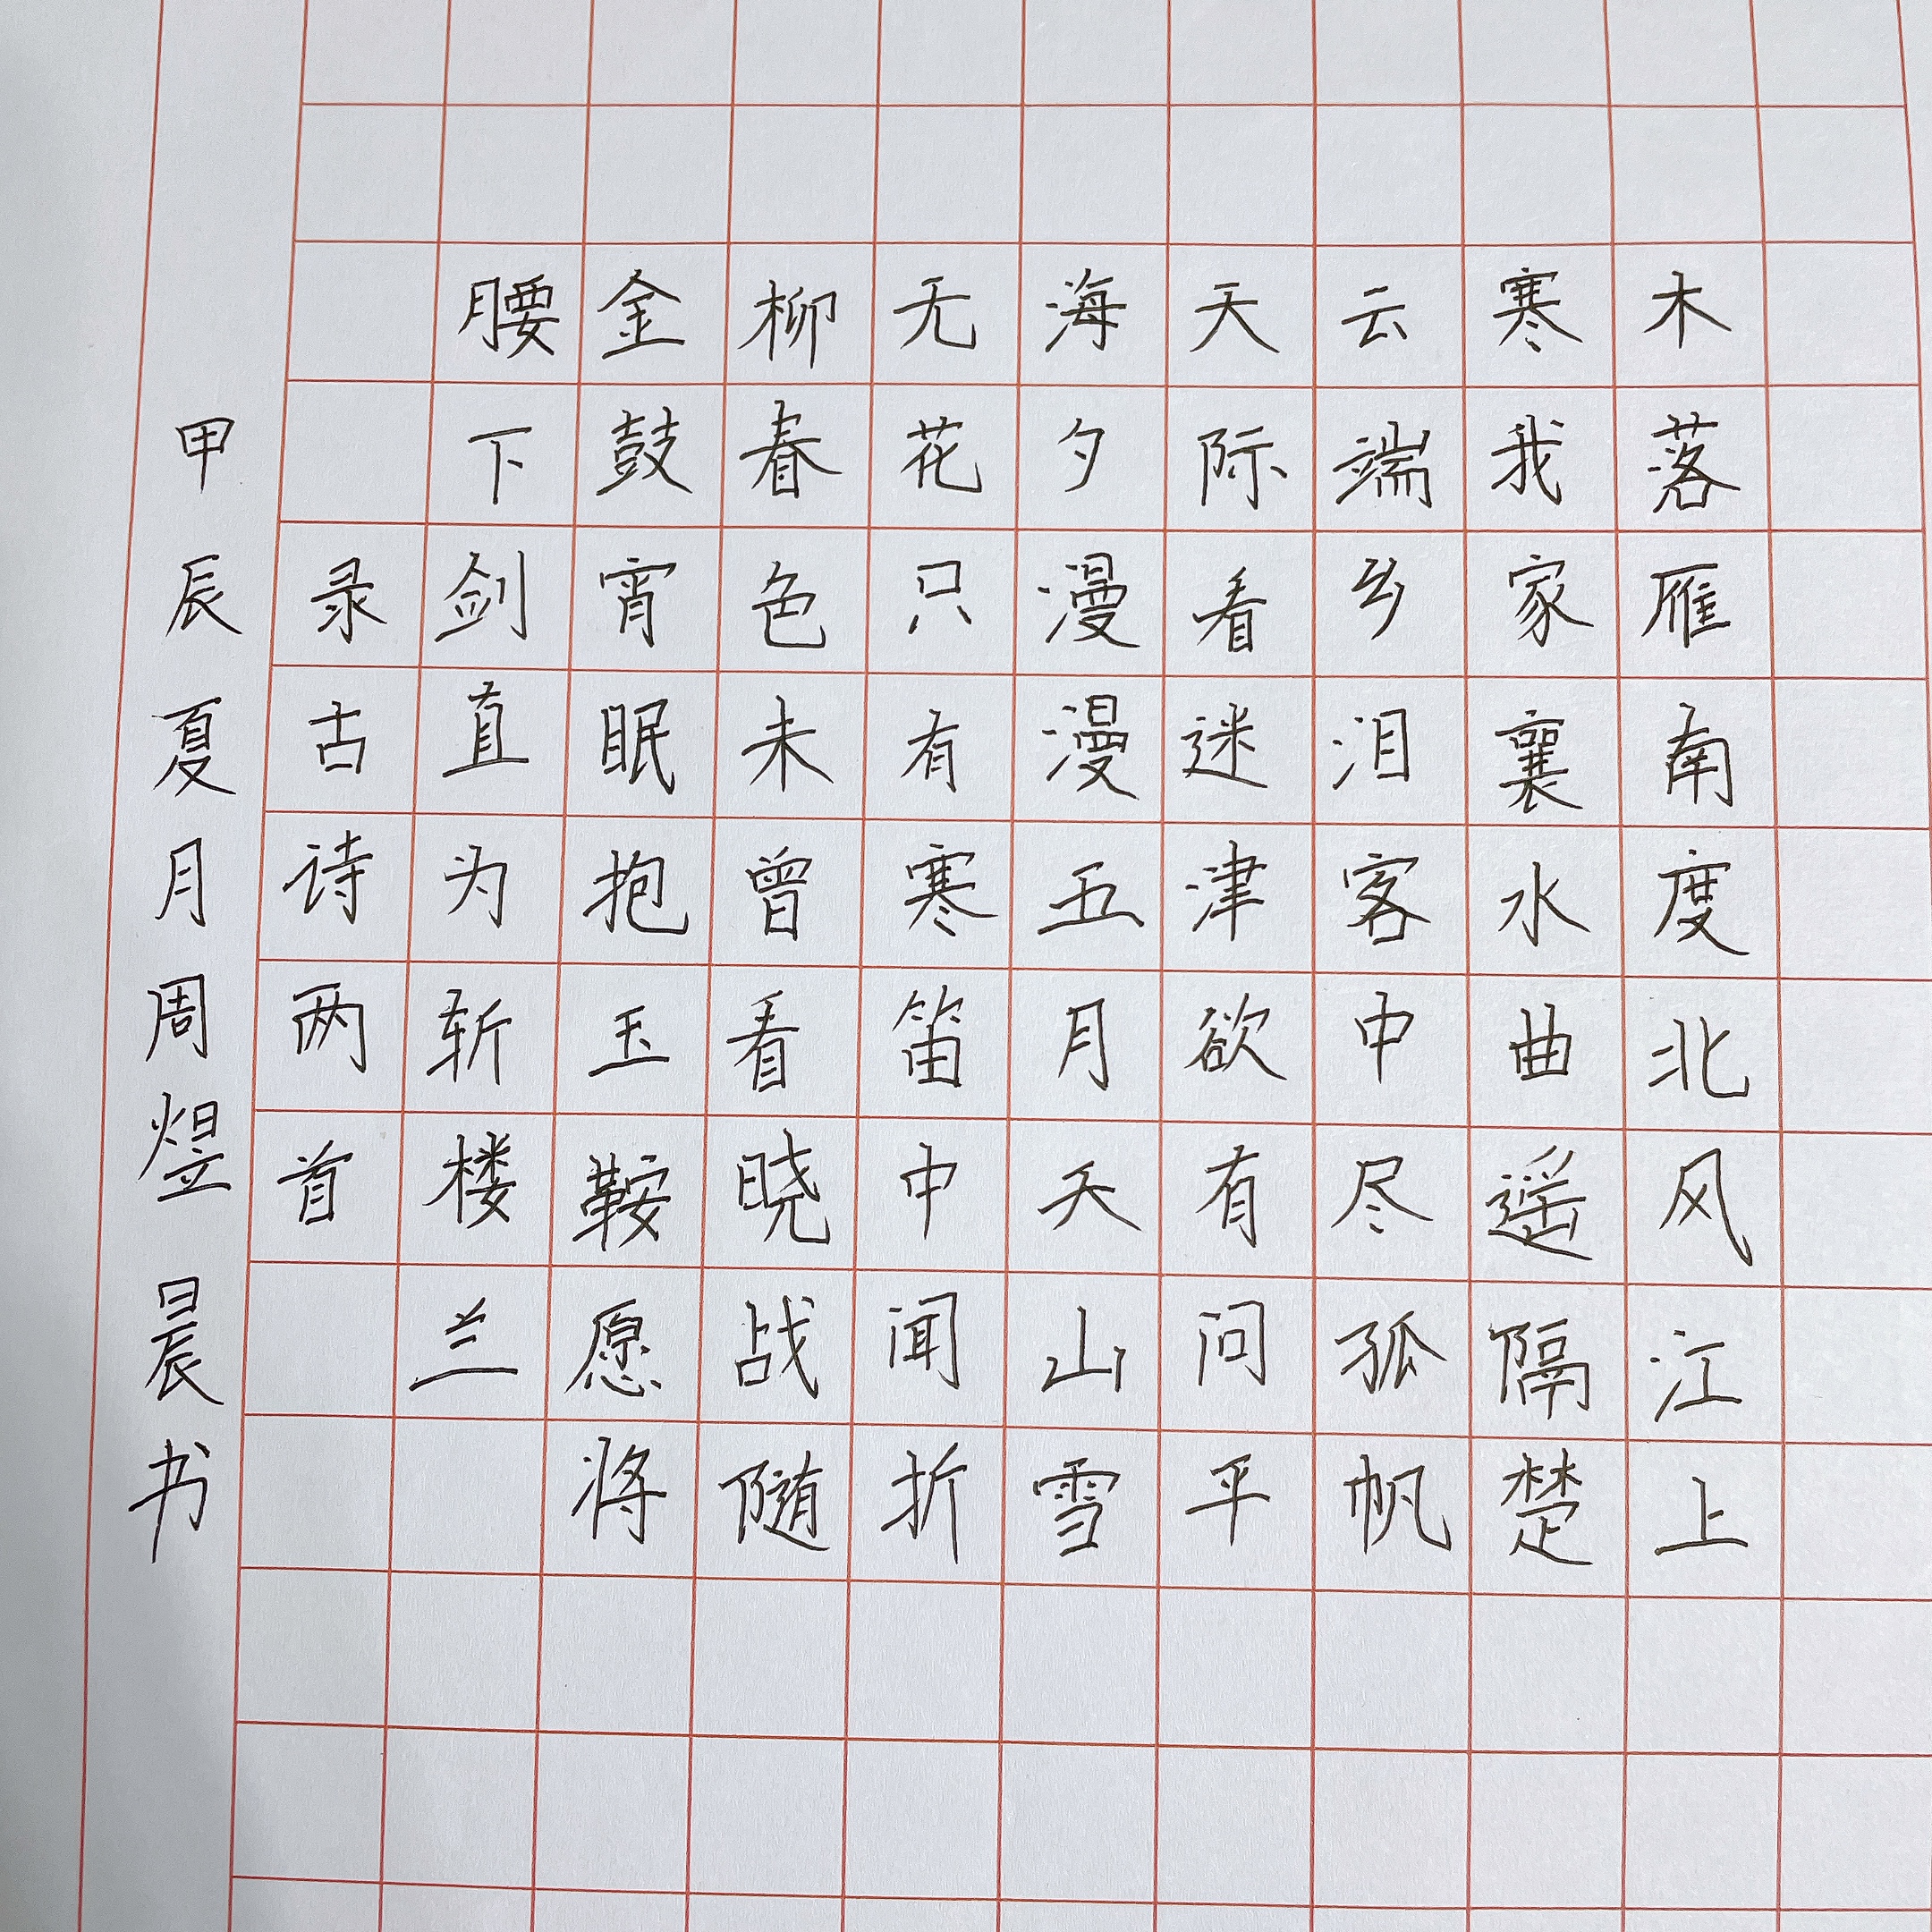 木落雁南度北风江上
寒我家襄水曲遥隔楚
云端乡泪客中尽孤帆
天际看迷津欲有问平
海夕漫漫五月天山雪
无花只有寒笛中闻折
柳春色未曾看晓战随
金鼓宵眠抱玉鞍愿将
腰下剑直为斩楼兰
录古诗两首
甲辰夏月周煜晨书